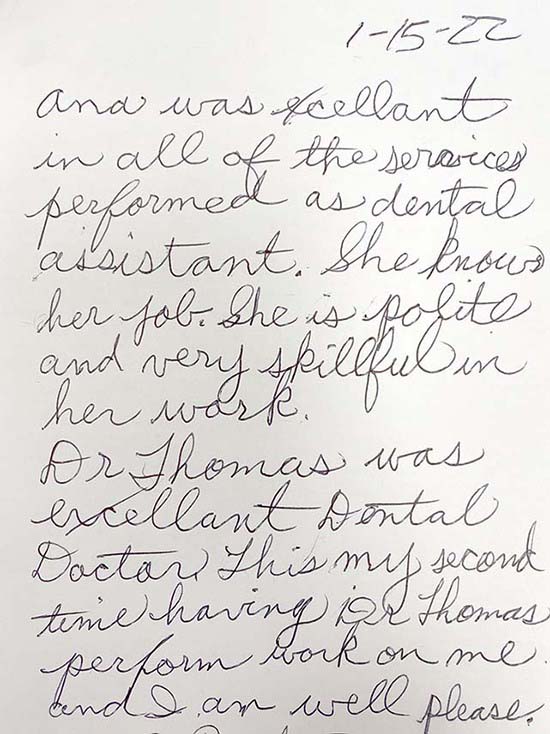 1-15-22
Ana was excellant
in all of the services
performed as dental
assistant. She knows
her job. She is polite
and very skillful in
her work.
Dr Thomas was
excellant Dental
Doctor, This my second
time having Dr Thomas
perform work on me.
and I am well please.